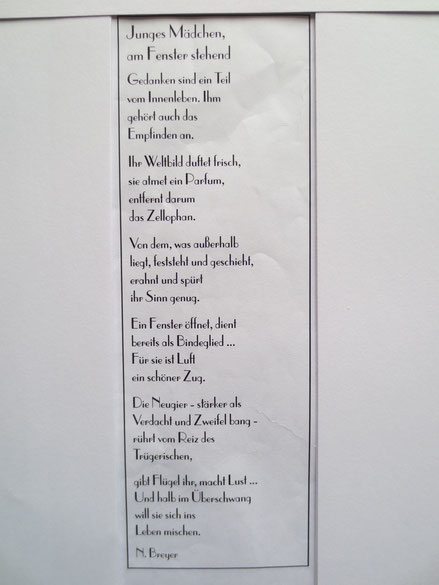 Junges Mädchen,
am Fenster stehend
Gedanken sind ein Teil
vom Innenleben. Ihm
gehört auch das
Empfinden an.
Ihr Weltbild duftet frisch,
sie atmet ein Parfum,
entfernt darum
das Zellophan.
Von dem, was außerhalb
liegt, feststeht und geschieht,
erahnt und spürt
ihr Sinn genug.
Ein Fenster öffnet, dient
bereits als Bindeglied ...
Für sie ist Luft
ein schöner Zug.
Die Neugier - stärker als
Verdacht und Zweifel bang -
rührt vom Reiz des
Trügerischen,
gibt Flügel ihr, macht Lust ...
Und halb im Überschwang
will sie sich ins
Leben mischen.
N. Breyer